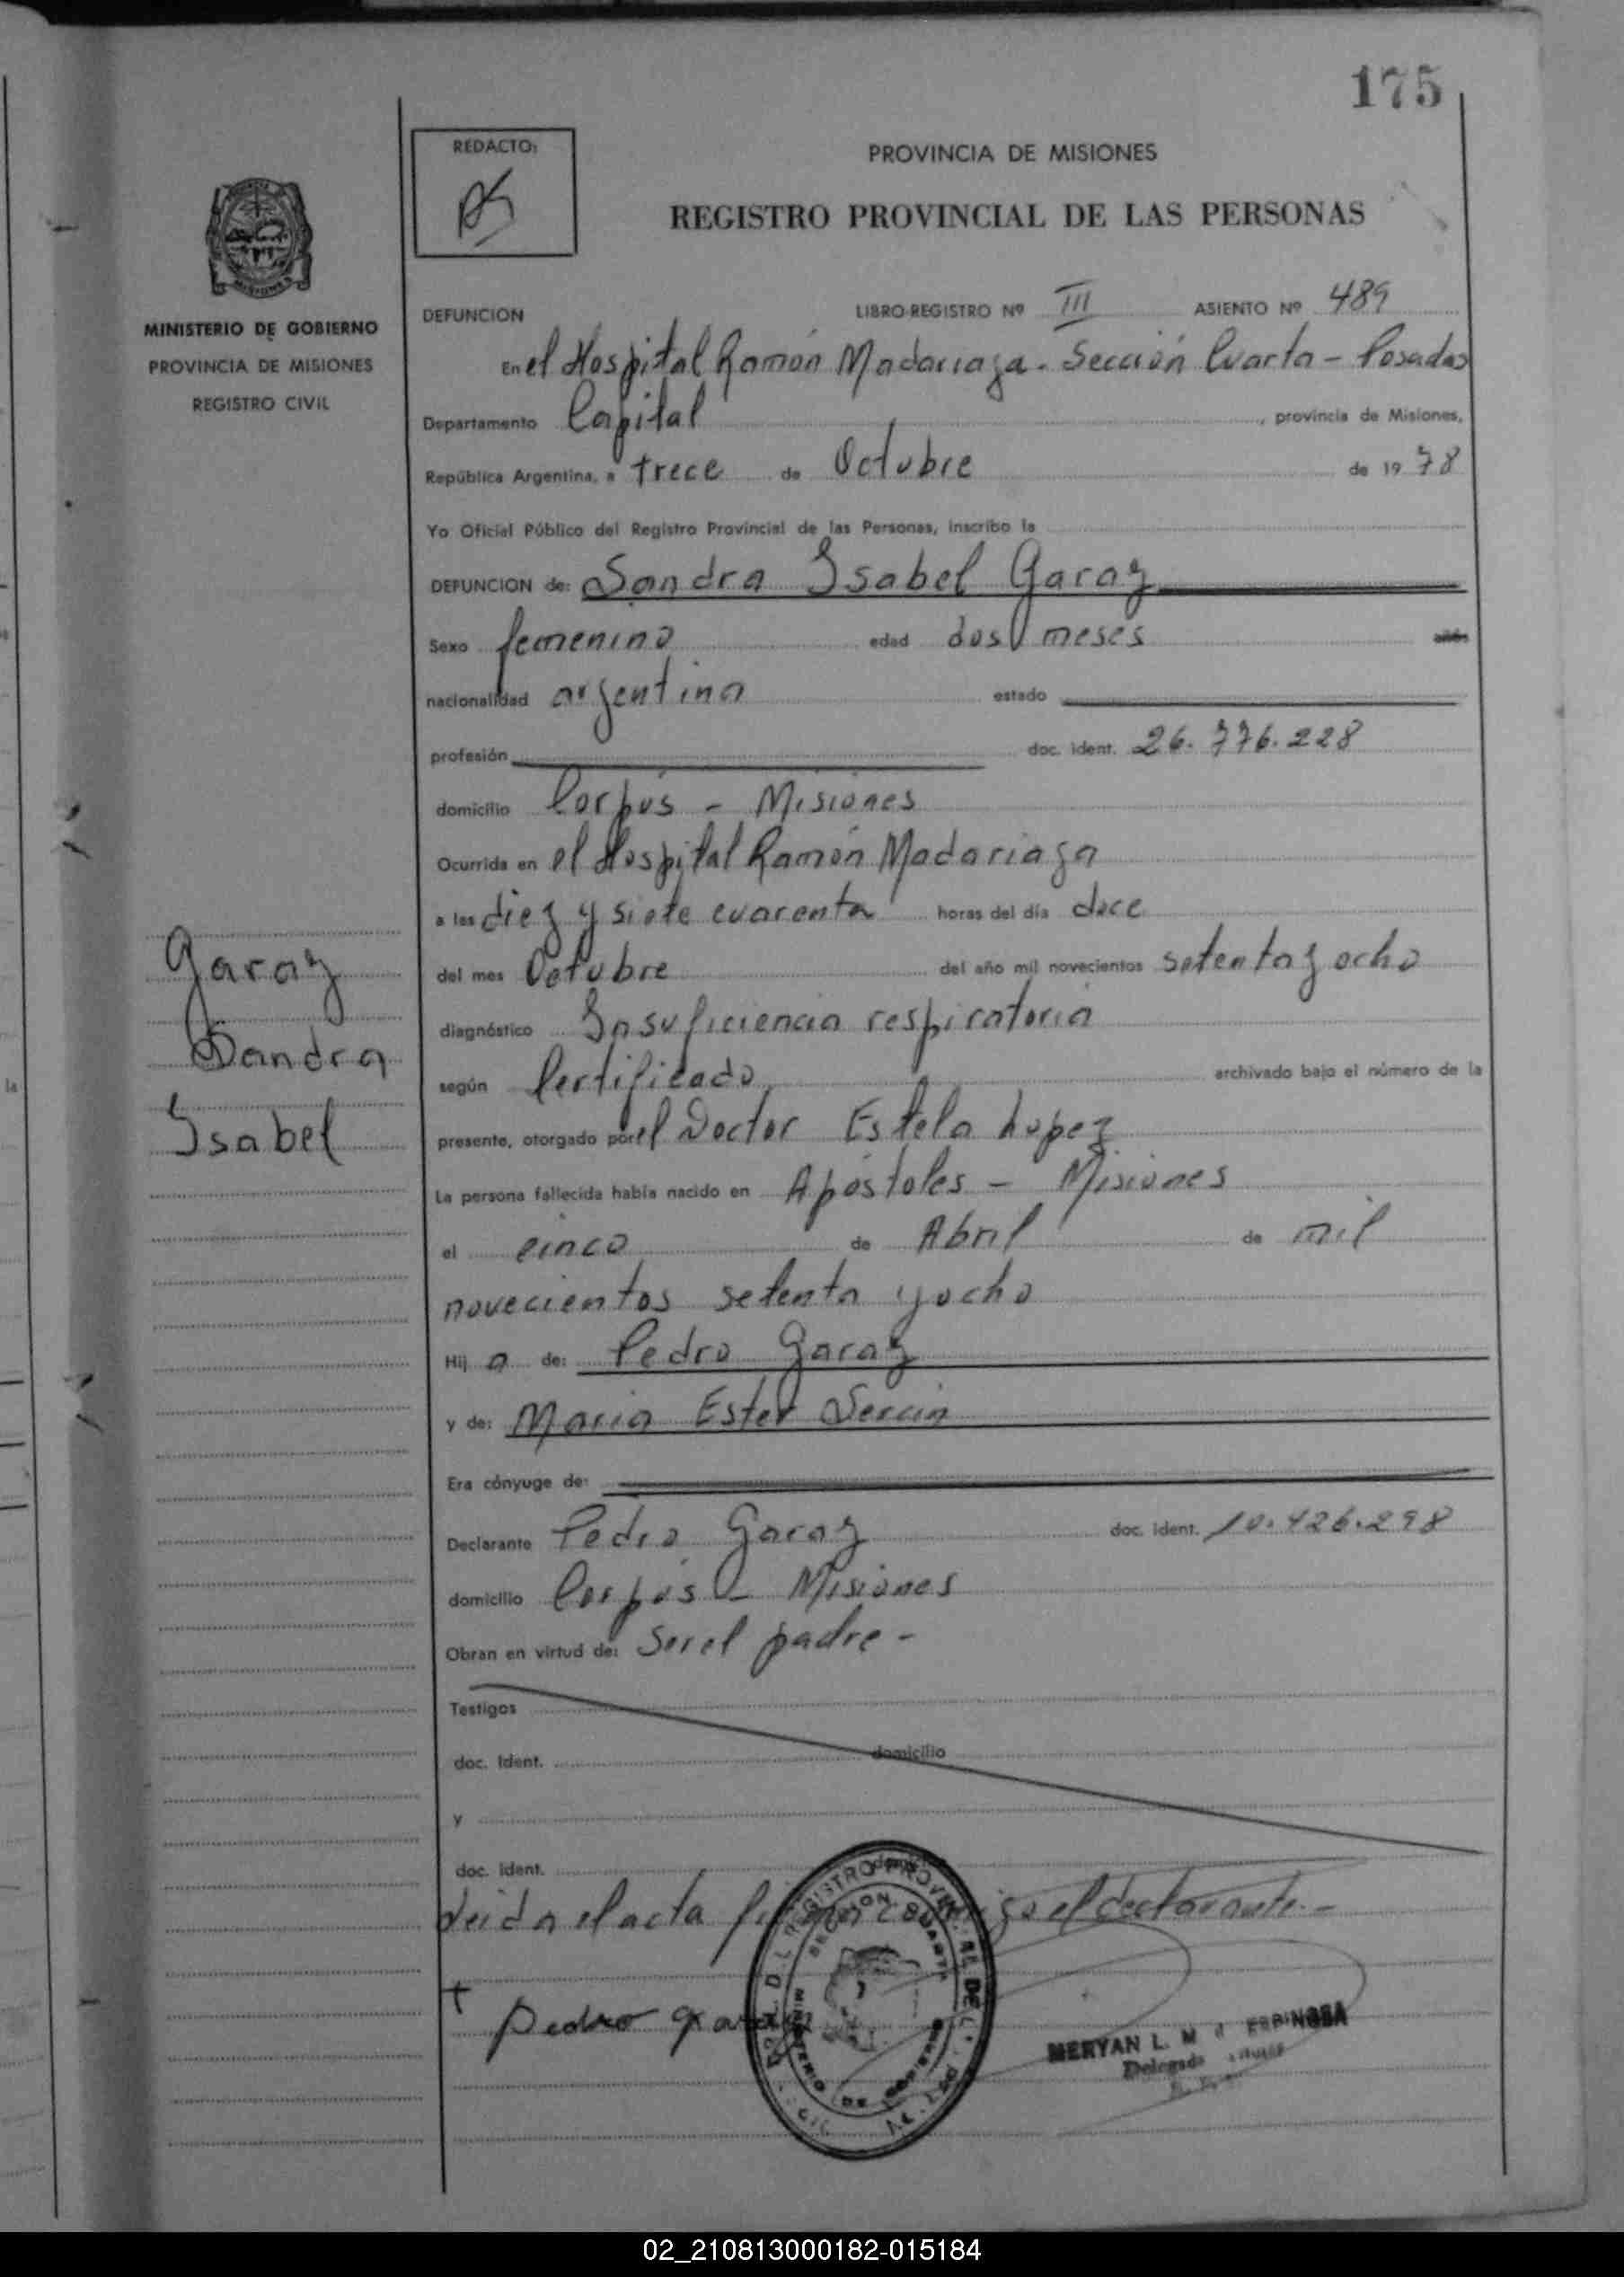 175
REDACTO:
PROVINCIA DE MISIONES
REGISTRO PROVINCIAL DE LAS PERSONAS
MINISTERIO DE GOBIERNO
PROVINCIA DE MISIONES
REGISTRO CIVIL
DEFUNCION LIBRO-REGISTRO Nº III ASIENTO Nº 489
En el Hospital Ramón Madariaga - Sección Cuarta - Posadas
Departamento Capital, provincia de Misiones,
República Argentina, a trece de Octubre de 1978
Yo Oficial Público del Registro Provincial de las Personas, inscribo la
DEFUNCION de: Sandra Isabel Garay
Sexo femenino edad dos meses años
nacionalidad argentina estado
profesión doc. ident. 26.776.228
domicilio Corpus - Misiones
Ocurrida en el Hospital Ramón Madariaga
a las diez y siete cuarenta horas del día doce
del mes Octubre del año mil novecientos setenta y ocho
diagnóstico Insuficiencia respiratoria
según Certificado archivado bajo el número de la
presente, otorgado por el Doctor Estela Lopez
La persona fallecida había nacido en Apóstoles - Misiones
el cinco de Abril de mil
novecientos setenta y ocho
Hija de: Pedro Garay
y de: Maria Ester
Era cónyuge de:
Declarante Pedro Garay doc. ident. 10.426.298
domicilio Corpus - Misiones
Obran en virtud de: Ser el padre -
Testigos
doc. Ident. domicilio
y
doc. ident.
Leida el acta el declarante.-
+ Pedro Garay
MERYAN L. M ESPINOSA
Delegada
Garay
Sandra
Isabel
SECCION CUARTA
MINISTERIO DE GOBIERNO
02_210813000182-015184